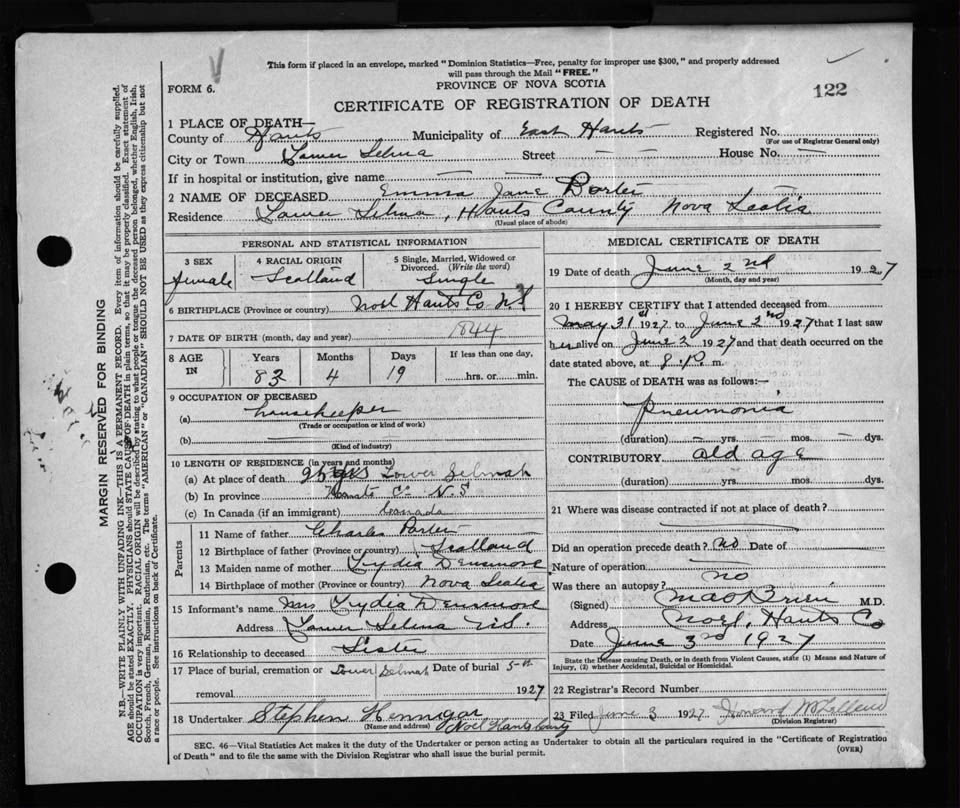 This form if placed in an envelope, marked "Dominion Statistics—Free, penalty for improper use $300," and properly addressed
will pass through the Mail "FREE."
FORM 6.
PROVINCE OF NOVA SCOTIA
122
CERTIFICATE OF REGISTRATION OF DEATH
1 PLACE OF DEATH—
County of Hants Municipality of East Hants Registered No.
(For use of Registrar General only)
City or Town Lower Selma Street — — House No. —
If in hospital or institution, give name — —
2 NAME OF DECEASED Emma Jane
Residence Lower Selma, Hants County Nova Scotia
(Usual place of abode)
PERSONAL AND STATISTICAL INFORMATION
3 SEX 4 RACIAL ORIGIN 5 Single, Married, Widowed or
Divorced. (Write the word)
female Scotland Single
6 BIRTHPLACE (Province or country) Noel Hants Co N.S
7 DATE OF BIRTH (month, day and year) 1844
8 AGE IN Years Months Days If less than one day,
83 4 19 hrs. or min.
9 OCCUPATION OF DECEASED
(a) housekeeper
(Trade or occupation or kind of work)
(b)
(Kind of industry)
10 LENGTH OF RESIDENCE (in years and months)
(a) At place of death Lower Selmah
(b) In province Co N.S
(c) In Canada (if an immigrant) Canada
Parents
11 Name of father Charles
12 Birthplace of father (Province or country) Scotland
13 Maiden name of mother Lydia Densmore
14 Birthplace of mother (Province or country) Nova Scotia
15 Informant's name Mrs Lydia Densmore
Address Lower Selma N.S.
16 Relationship to deceased Sister
17 Place of burial, cremation or Lower Selmah Date of burial
removal 1927
18 Undertaker Stephen Hennigar
(Name and address) Noel Hants County
MEDICAL CERTIFICATE OF DEATH
19 Date of death June 2nd 1927
(Month, day and year)
20 I HEREBY CERTIFY that I attended deceased from
May 31st 1927 to June 2nd 1927 that I last saw
her alive on June 2 1927 and that death occurred on the
date stated above, at 8 P. m.
The CAUSE of DEATH was as follows:—
Pneumonia
(duration) — yrs. mos. — dys.
CONTRIBUTORY old age
(duration) yrs. mos. dys.
21 Where was disease contracted if not at place of death?
Did an operation precede death? no Date of
Nature of operation
Was there an autopsy? no
(Signed) M.D.
Address Noel, Hants Co
Date June 3rd 1927
State the Disease causing Death, or in death from Violent Causes, state (1) Means and Nature of
Injury, (2) whether Accidental, Suicidal or Homicidal.
22 Registrar's Record Number
23 Filed June 3 1927 Howard
Division Registrar
SEC. 46—Vital Statistics Act makes it the duty of the Undertaker or person acting as Undertaker to obtain all the particulars required in the "Certificate of Registration
of Death" and to file the same with the Division Registrar who shall issue the burial permit.
(OVER)
MARGIN RESERVED FOR BINDING
N.B.—WRITE PLAINLY WITH UNFADING INK—THIS IS A PERMANENT RECORD. Every item of information should be carefully supplied.
AGE should be stated EXACTLY. PHYSICIANS should STATE CAUSE OF DEATH in plain terms, so that it may be properly classified. Exact statement of
OCCUPATION is very important. RACIAL ORIGIN will be described by stating to what people or tongue the deceased person belonged, whether English, Irish,
Scotch, French, German, Russian, Ruthenian, etc. The terms "AMERICAN" or "CANADIAN" SHOULD NOT BE USED as they express citizenship but not
a race or people. See instructions on back of Certificate.